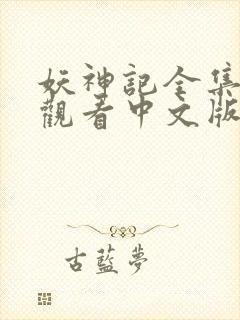 妖神記全集
觀看中文版
古藍夢